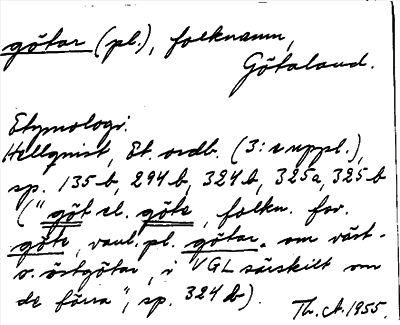 götar (pl.), folknamn,
Götaland.
Etymologi:
Hellquist, Et. ordb. (3:e uppl.),
sp. 135 b, 294 b, 324 b, 325 a, 325 b
("göt el. göte, folkn. fsv.
göte, vanl. pl. götar, om väst-
o. östgötar, i VGL särskilt om
de förra", sp. 324 b).
Th. A. 1955.